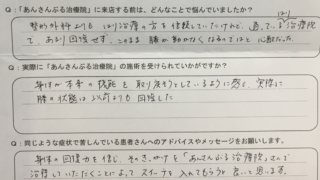 Q：「あんさんぷる治療院」に来店する前は、どんなことで悩んでいましたか？
整形外科よりも はり治療の方を信頼していたけれど、通っている治療院
はり
で、あまり回復せず、このまま腕が動かなくなるのではと 心配だった。
Q：実際に「あんさんぷる治療院」の施術を受けられていかがですか？
身体が本来の機能を取り戻そうとしているように感じ、実際に
腕の状態は 以前よりも回復した
Q：同じような症状で苦しんでいる患者さんへのアドバイスやメッセージをお願いします。
身体の回復力を信じ、そのきっかけを「あんさんぷる治療院」さんで
治療していただくことによって スイッチを 入れてもらうと良いと思います。